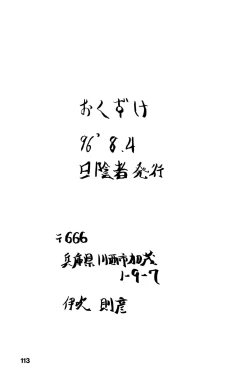 おくずけ
96' 8.4
日陰者発行
〒666
兵庫県川西市加茂
1-9-7
伊吹 則彦
113